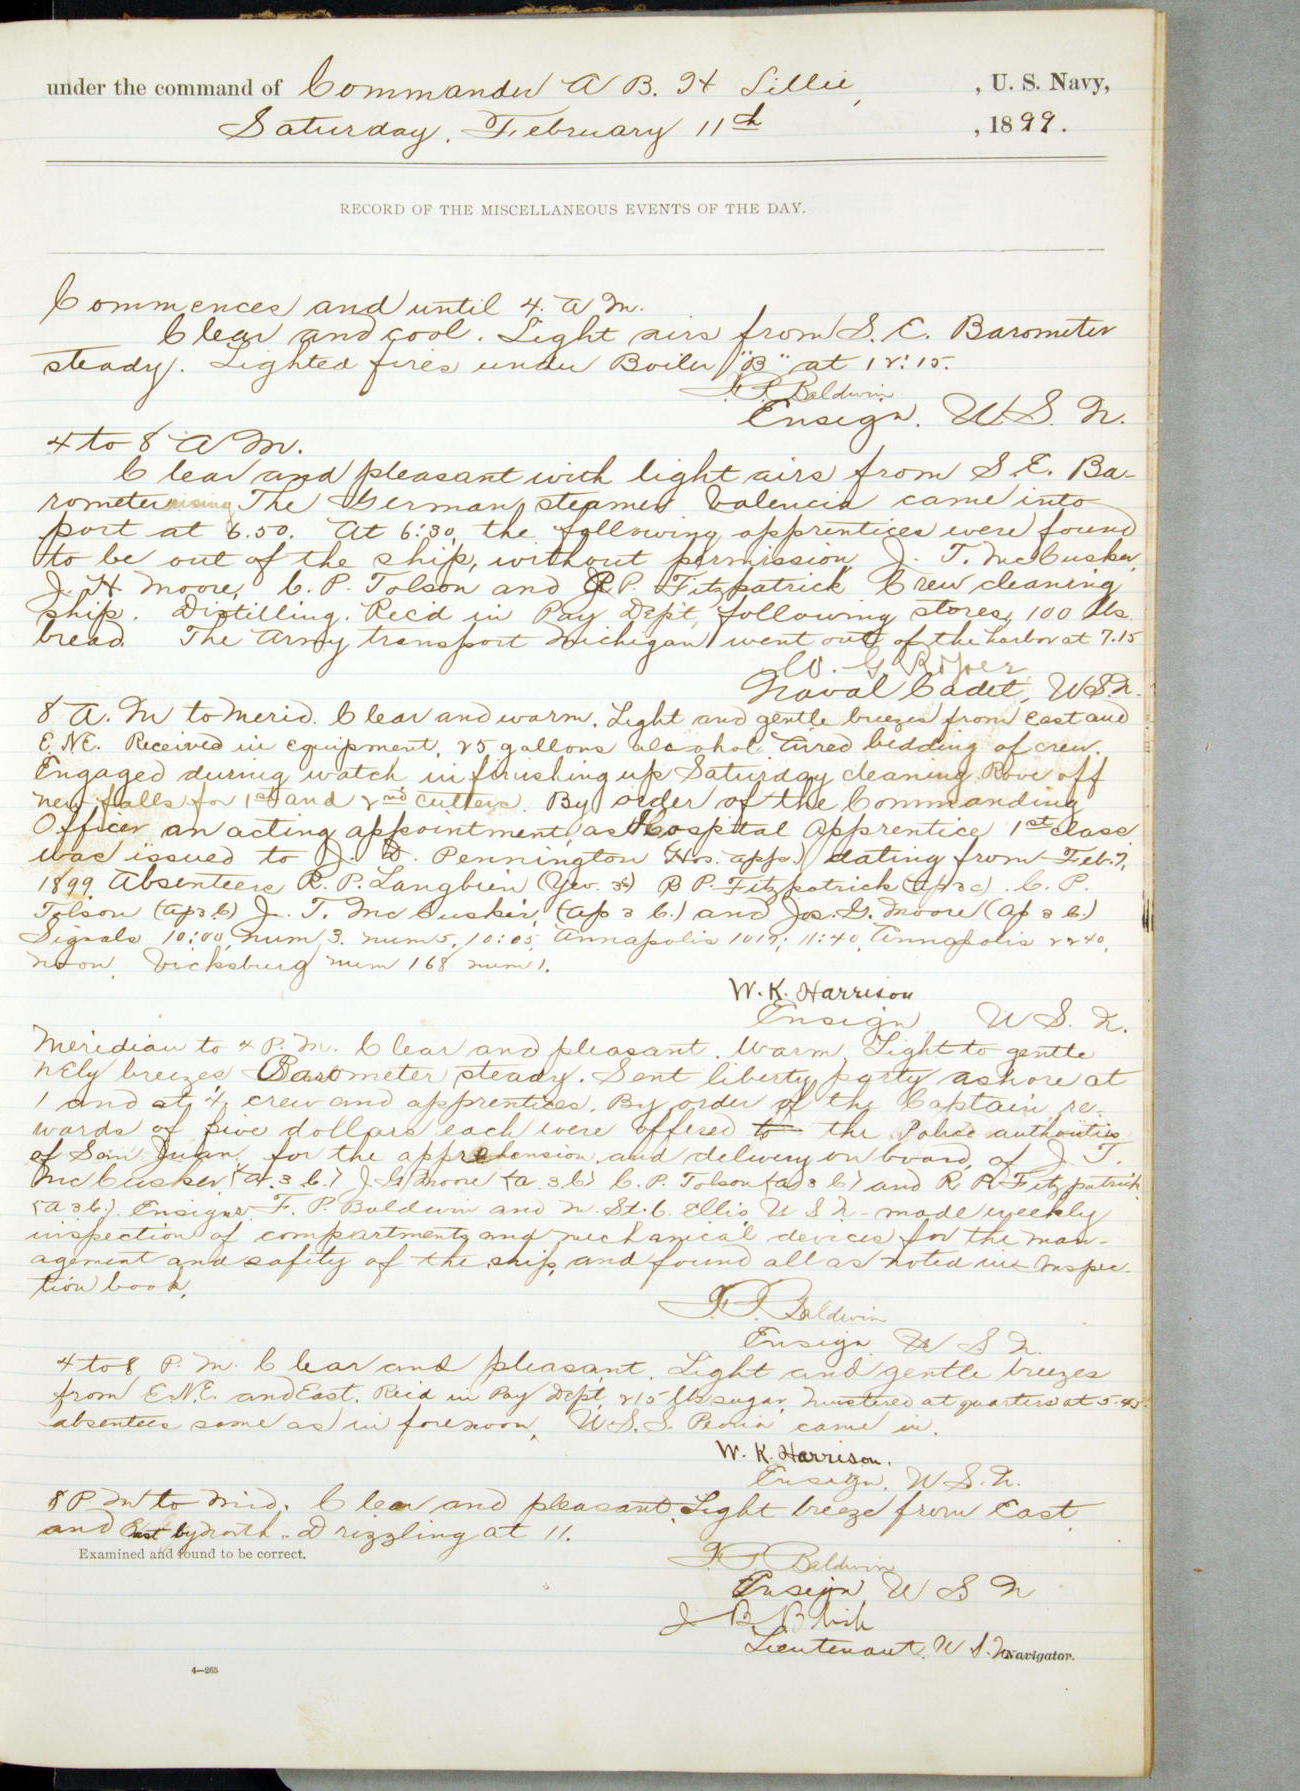 under the command of Commander A B. H Lillie, , U. S. Navy,
Saturday, February 11th , 1899.
RECORD OF THE MISCELLANEOUS EVENTS OF THE DAY.
Commences and until 4. A M.
Clear and cool. Light airs from S. E. Barometer
steady. Lighted fires under Boiler "B" at 12:15.
F. P. Baldwin
Ensign. U. S. N.
4 to 8 A M.
Clear and pleasant with light airs from S. E. Ba-
rometer rising The German steamer Valencia came into
port at 6.50. At 6:30, the following apprentices were found
to be out of the ship, without permission, J. T. McCusker,
J. H Moore, C. P. Tolson and R P. Fitzpatrick Crew cleaning
ship. Distilling. Rec'd in Pay Dep't, following stores, 100 lbs
bread. The Army transport Michigan went out of the harbor at 7.15
W. G Roper
Naval Cadet, U.S.N.
8 A. M to Merid. Clear and warm. Light and gentle breezes from East and
E. NE. Received in equipment, 25 gallons alcohol. Aired bedding of crew.
Engaged during watch in finishing up Saturday cleaning. Rove off
new falls for 1st and 2nd cutters. By order of the Commanding
Officer an acting appointment as Hospital Apprentice 1st class
was issued to J. D. Pennington (Hos. app.) dating from Feb. 7,
1899 Absentees R. P. Langbein (Yeo. 3c) R P. Fitzpatrick (ap 3 c). C. P.
Tolson (ap 3 c) J. T. McCusker, (ap 3 c.) and Jos. H. Moore (ap 3 c.)
Signals 10:00, num 3. num 5, 10:05, Annapolis 1017; 11:40, Annapolis 2240,
noon, Vicksburg num 168 num 1.
W. K. Harrison
Ensign U S. N.
Meridian to 4 P. M. Clear and pleasant. Warm, Light to gentle
NEly breezes Barometer steady. Sent liberty party ashore at
1 and at 4, crew and apprentices. By order of the Captain re-
wards of five dollars each were offered to the Police authorities
of San Juan, for the apprehension and delivery on board, of J. T.
McCusker (a. 3 c.) J. H Moore (a. 3 c) C. P. Tolson (a. 3 c) and R. P. Fitzpatrick
(a 3 c.). Ensigns F. P. Baldwin and M. St. C. Ellis, U S N - made weekly
inspection of compartments and mechanical devices for the man-
agement and safety of the ship, and found all as noted in inspec-
tion book.
F. P. Baldwin
Ensign U S N.
4 to 8 P. M. Clear and pleasant. Light and gentle breezes
from E.N.E. and East. Rec'd in Pay Dep't, 215 lbs sugar. Mustered at quarters at 5.45
absentees same as in forenoon, U. S. S. Peoria came in.
W. K. Harrison.
Ensign, U. S. N.
8 P. M to Mid. Clear and pleasant. Light breeze from East
and East by north. Drizzling at 11.
Examined and found to be correct.
F. P. Baldwin
Ensign U S N
J B Blish
Lieutenant, U S. N Navigator.
4—265